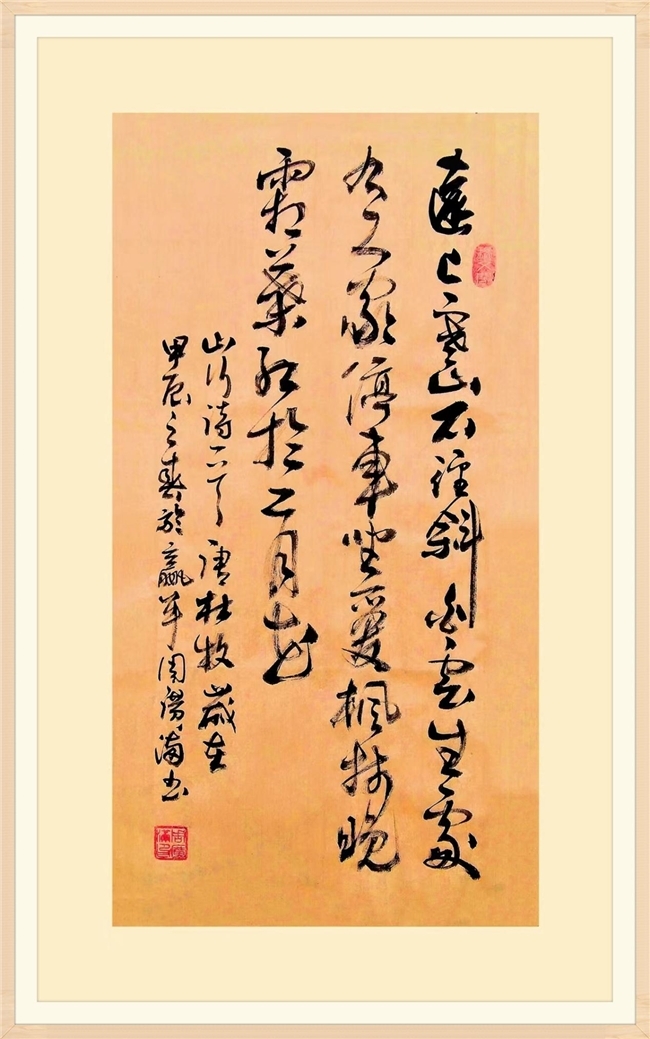 遠上寒山石徑斜白雲生處
有人家停車坐愛楓林晚
霜葉紅於二月花
山行詩一首唐杜牧歲在
甲辰之春於周書